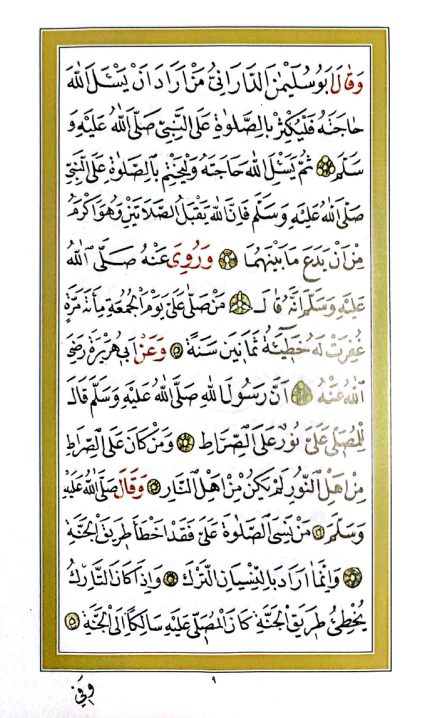 وَقَالَ اَبُو سُلَيْمٰنَ الدَّارَانِيُّ مَنْ اَرَادَ اَنْ يَسْئَلَ اللهَ
حَاجَتَهُ فَلْيُكْثِرْ بِالصَّلٰوةِ عَلَى النَّبِيِّ صَلَّى اللهُ عَلَيْهِ وَ
سَلَّمَ ثُمَّ يَسْئَلُ اللهَ حَاجَتَهُ وَلْيَخْتِمْ بِالصَّلٰوةِ عَلَى النَّبِيِّ
صَلَّى اللهُ عَلَيْهِ وَسَلَّمَ فَاِنَّ اللهَ يَقْبَلُ الصَّلَاتَيْنِ وَهُوَ اَكْرَمُ
مِنْ اَنْ يَدَعَ مَا بَيْنَهُمَا وَرُوِيَ عَنْهُ صَلَّى اللهُ
عَلَيْهِ وَسَلَّمَ اَنَّهُ قَالَ مَنْ صَلَّى عَلَيَّ يَوْمَ الْجُمُعَةِ مِائَةَ مَرَّةٍ
غُفِرَتْ لَهُ خَطِيْئَةُ ثَمَانِينَ سَنَةً وَعَنْ اَبِي هُرَيْرَةَ رَضِيَ
اللهُ عَنْهُ اَنَّ رَسُولَ اللهِ صَلَّى اللهُ عَلَيْهِ وَسَلَّمَ قَالَ
لِلْمُصَلِّي عَلَيَّ نُورٌ عَلَى الصِّرَاطِ وَمَنْ كَانَ عَلَى الصِّرَاطِ
مِنْ اَهْلِ النُّورِ لَمْ يَكُنْ مِنْ اَهْلِ النَّارِ وَقَالَ صَلَّى اللهُ عَلَيْهِ
وَسَلَّمَ مَنْ نَسِيَ الصَّلٰوةَ عَلَيَّ فَقَدْ اَخْطَأَ طَرِيقَ الْجَنَّةِ
وَاِنَّمَا اَرَادَ بِالنِّسْيَانِ التَّرْكَ وَاِذَا كَانَ التَّارِكُ
يُخْطِئُ طَرِيقَ الْجَنَّةِ كَانَ الْمُصَلِّي عَلَيْهِ سَالِكًا اِلَى الْجَنَّةِ
٩
وَفِي